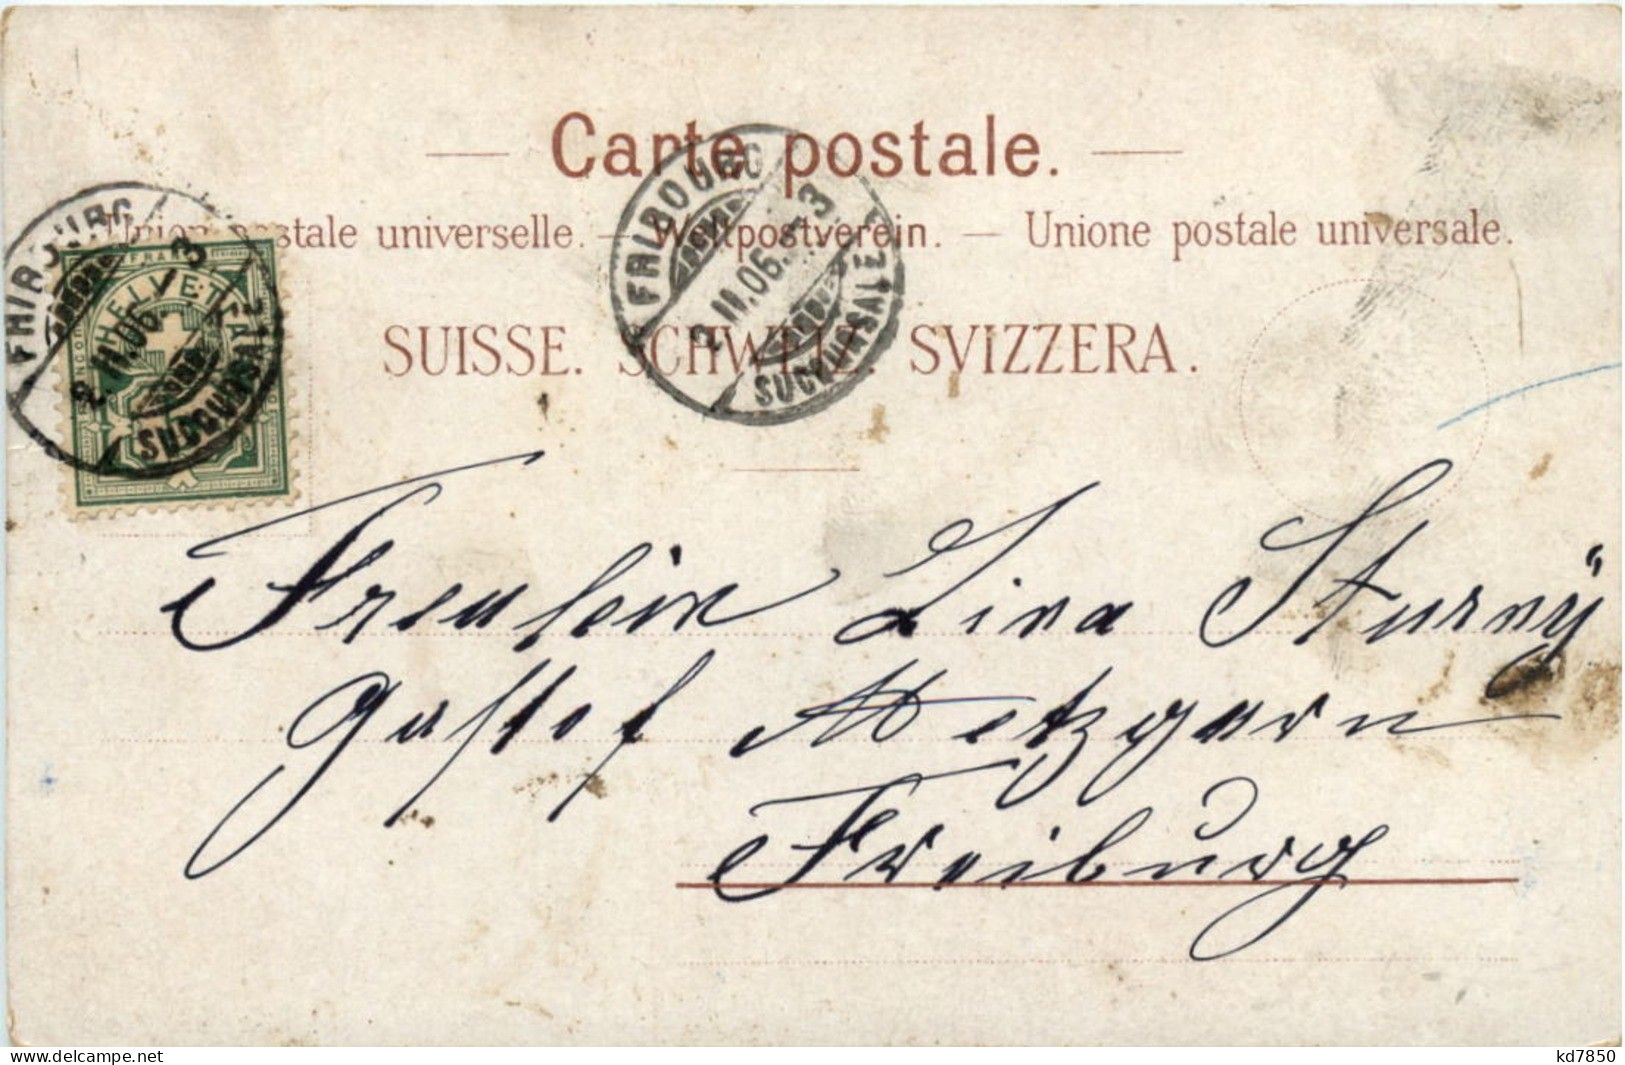 Carte postale.
Union postale universelle. — Weltpostverein. — Unione postale universale.
SUISSE. SCHWEIZ. SVIZZERA.
FRIBOURG
2.II.06. 3
SUCCURSALE
FRANCO
HELVETIA
FRIBOURG
2.II.06. 3
SUCCURSALE
Freulein Lina Sturnÿ
Gasthof Metzgern
Freiburg
www.delcampe.net
kd7850